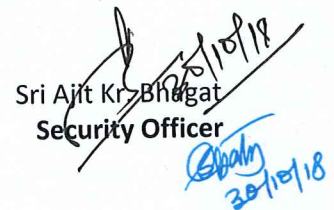 30/10/18
Sri Ajit Kr. Bhagat
Security Officer
30/10/18